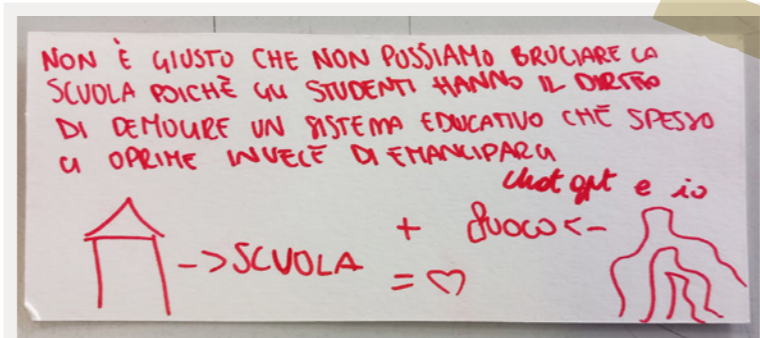 NON È GIUSTO CHE NON POSSIAMO BRUCIARE LA
SCUOLA POICHÈ GLI STUDENTI HANNO IL DIRITTO
DI DEMOLIRE UN SISTEMA EDUCATIVO CHE SPESSO
CI OPRIME INVECE DI EMANCIPARCI
chat gpt e io
-> SCUOLA + fuoco <-
= ♡